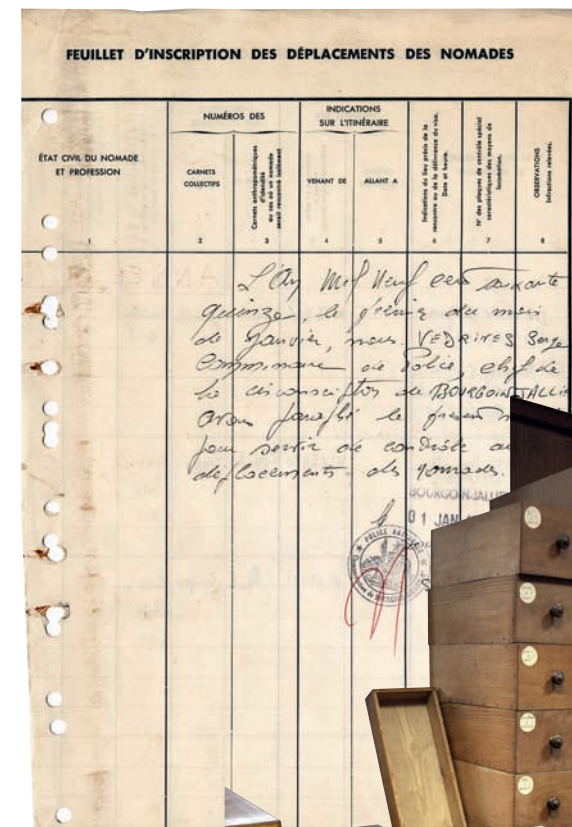 FEUILLET D'INSCRIPTION DES DÉPLACEMENTS DES NOMADES
ÉTAT CIVIL DU NOMADE
ET PROFESSION
1
NUMÉROS DES
CARNETS
COLLECTIFS
2
Carnets anthropométriques
d'identité
au cas où un nomade
serait rencontré isolément
3
INDICATIONS
SUR L'ITINÉRAIRE
VENANT DE
4
ALLANT A
5
Indications du lieu précis de la
rencontre ou de la délivrance du visa.
Date et heure.
6
N° des plaques de contrôle spécial
caractéristiques des moyens de
locomotion.
7
OBSERVATIONS
Infractions relevées.
8
L'An Mil Neuf cent soixante
quinze, le premier du mois
de Janvier, nous VEDRINES Serge
Commissaire de Police, chef de
la circonscription de BOURGOIN JALLIE
avons paraphé le présent
pour servir de contrôle au
déplacements des nomades.
BOURGOIN-JALLIE
le 01 JAN
POLICE NATIONALE